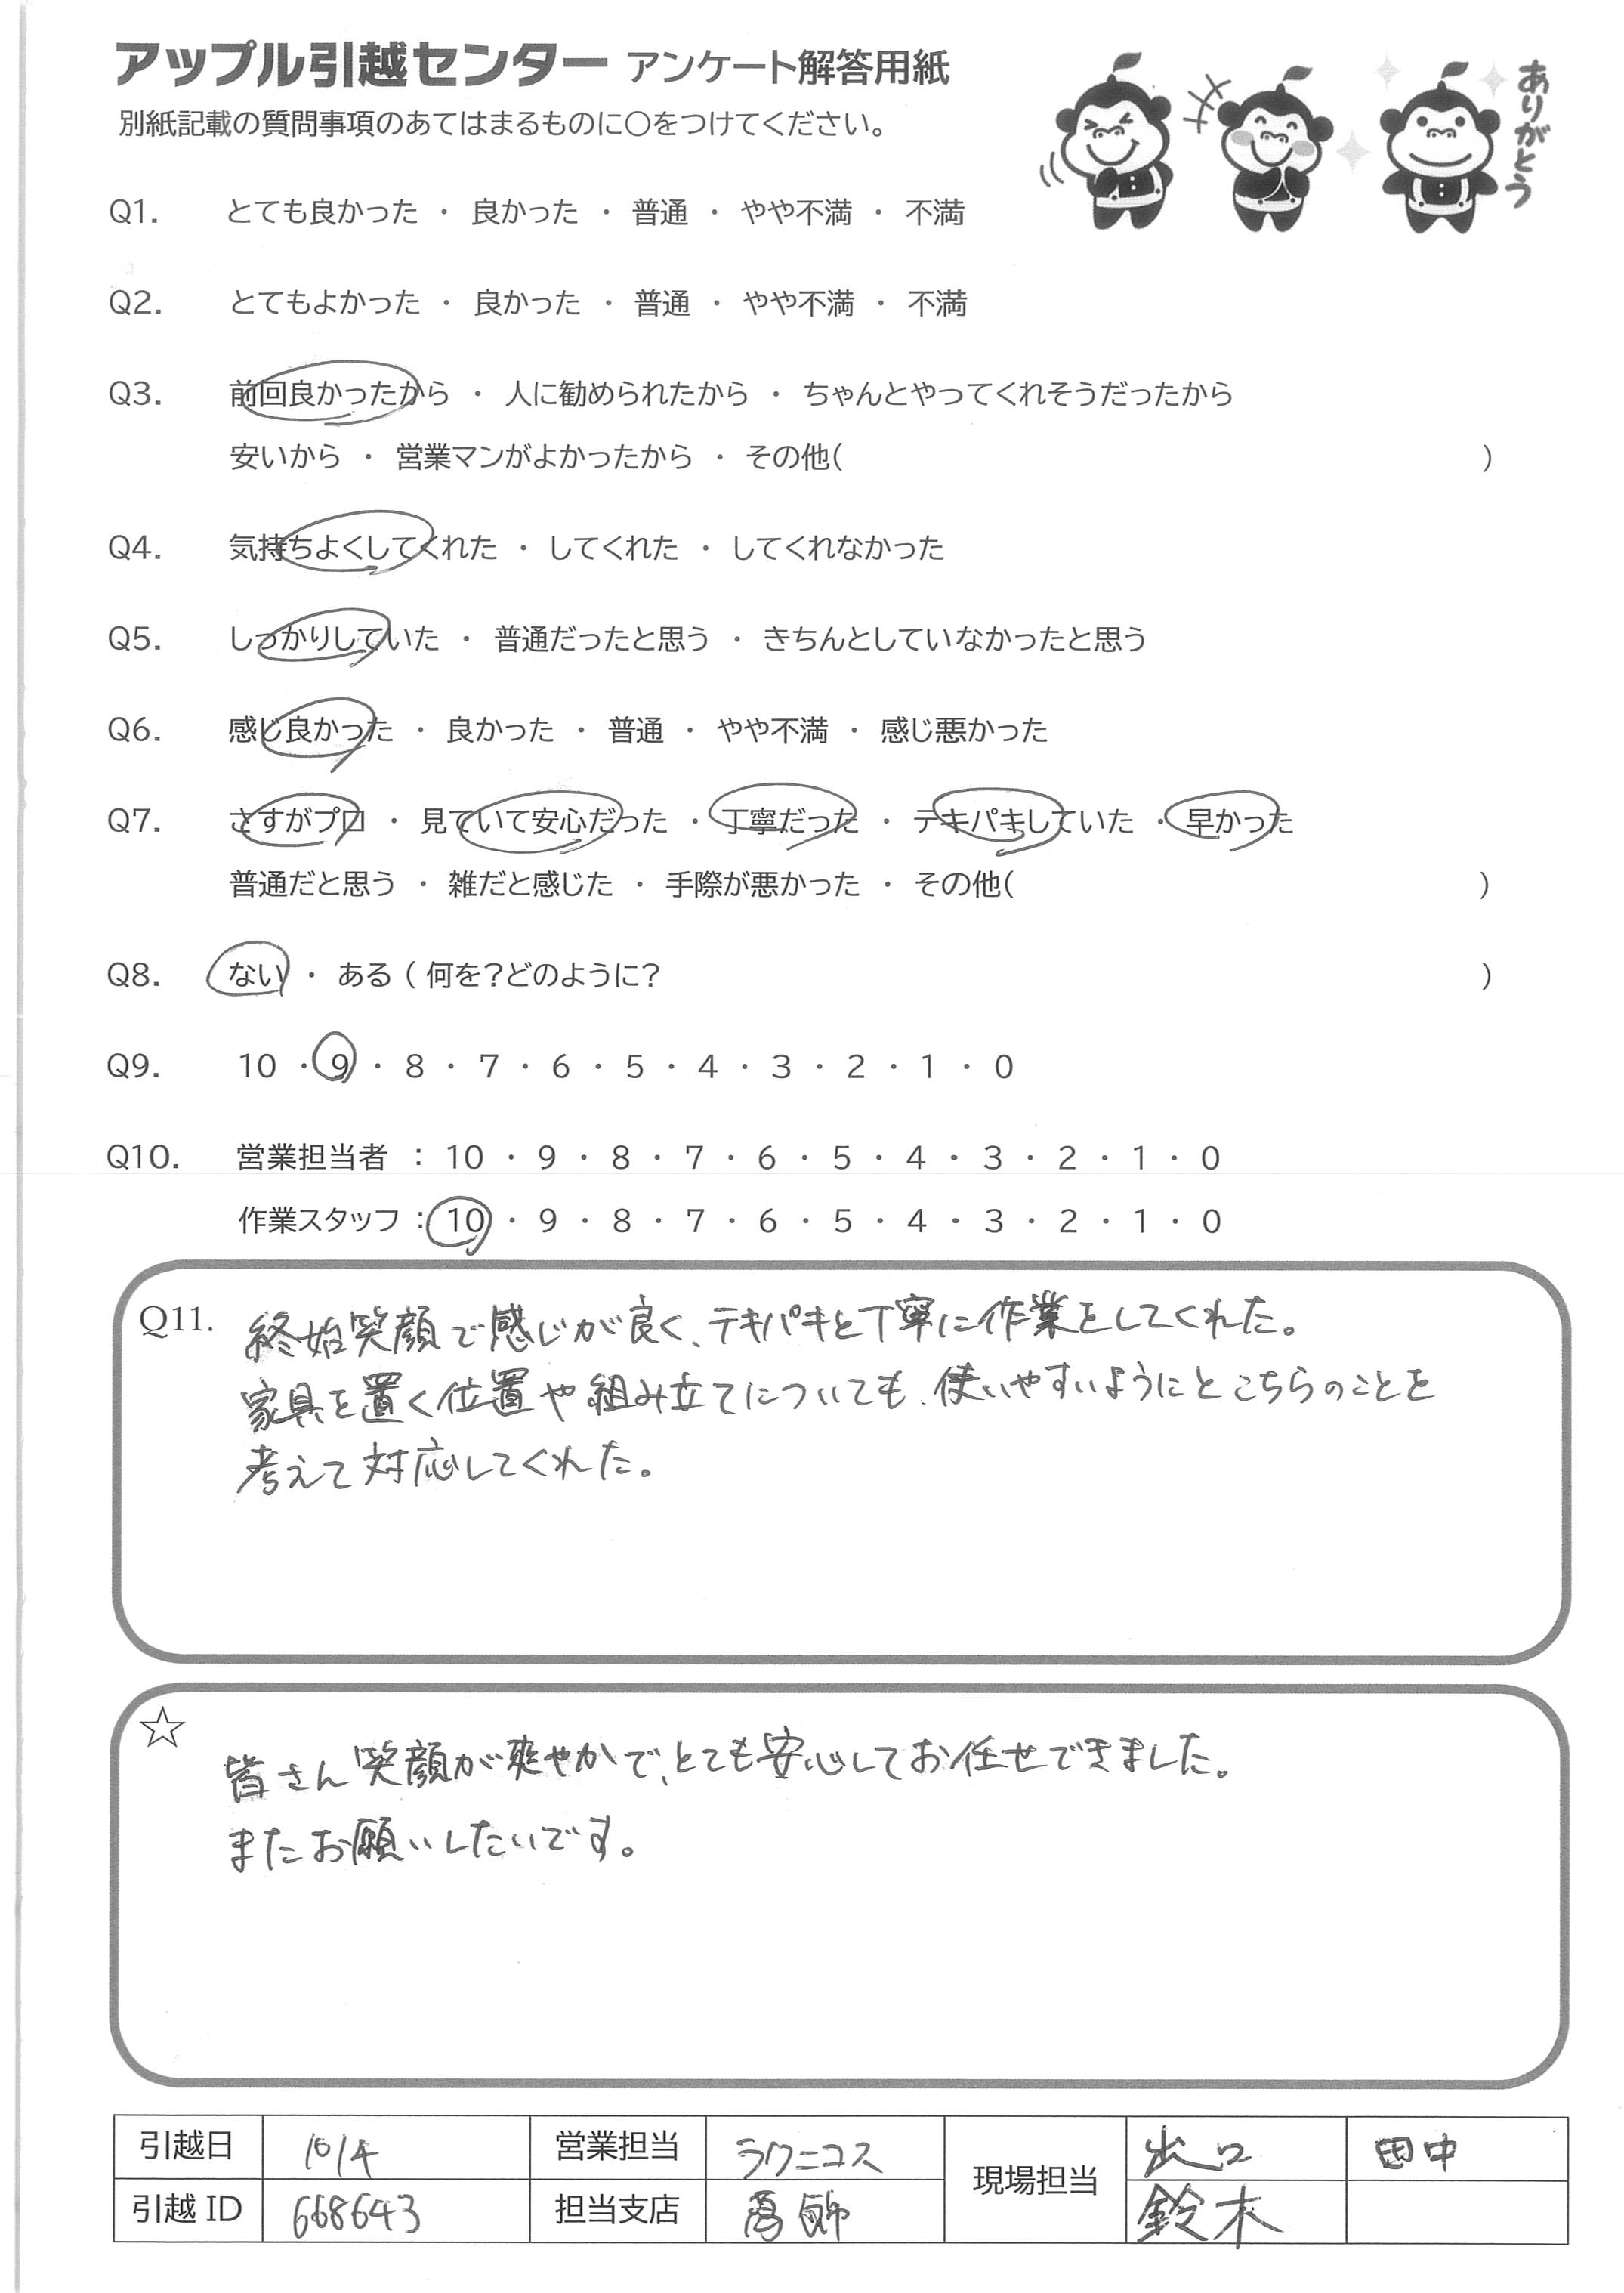 アップル引越センター アンケート解答用紙
別紙記載の質問事項のあてはまるものに○をつけてください。
ありがとう
Q1. とても良かった ・ 良かった ・ 普通 ・ やや不満 ・ 不満
Q2. とてもよかった ・ 良かった ・ 普通 ・ やや不満 ・ 不満
Q3. 前回良かったから ・ 人に勧められたから ・ ちゃんとやってくれそうだったから
安いから ・ 営業マンがよかったから ・ その他( )
Q4. 気持ちよくしてくれた ・ してくれた ・ してくれなかった
Q5. しっかりしていた ・ 普通だったと思う ・ きちんとしていなかったと思う
Q6. 感じ良かった ・ 良かった ・ 普通 ・ やや不満 ・ 感じ悪かった
Q7. さすがプロ ・ 見ていて安心だった ・ 丁寧だった ・ テキパキしていた ・ 早かった
普通だと思う ・ 雑だと感じた ・ 手際が悪かった ・ その他( )
Q8. ない ・ ある ( 何を？どのように？ )
Q9. 10 ・ 9 ・ 8 ・ 7 ・ 6 ・ 5 ・ 4 ・ 3 ・ 2 ・ 1 ・ 0
Q10. 営業担当者 ： 10 ・ 9 ・ 8 ・ 7 ・ 6 ・ 5 ・ 4 ・ 3 ・ 2 ・ 1 ・ 0
作業スタッフ ： 10 ・ 9 ・ 8 ・ 7 ・ 6 ・ 5 ・ 4 ・ 3 ・ 2 ・ 1 ・ 0
Q11. 終始笑顔で感じが良く、テキパキと丁寧に作業をしてくれた。
家具を置く位置や組み立てについても、使いやすいようにとこちらのことを
考えて対応してくれた。
☆
皆さん笑顔が爽やかで、とても安心してお任せできました。
またお願いしたいです。
引越日 10/4 営業担当 ラクニコス 現場担当 出口 田中
引越ID 668643 担当支店 鈴木